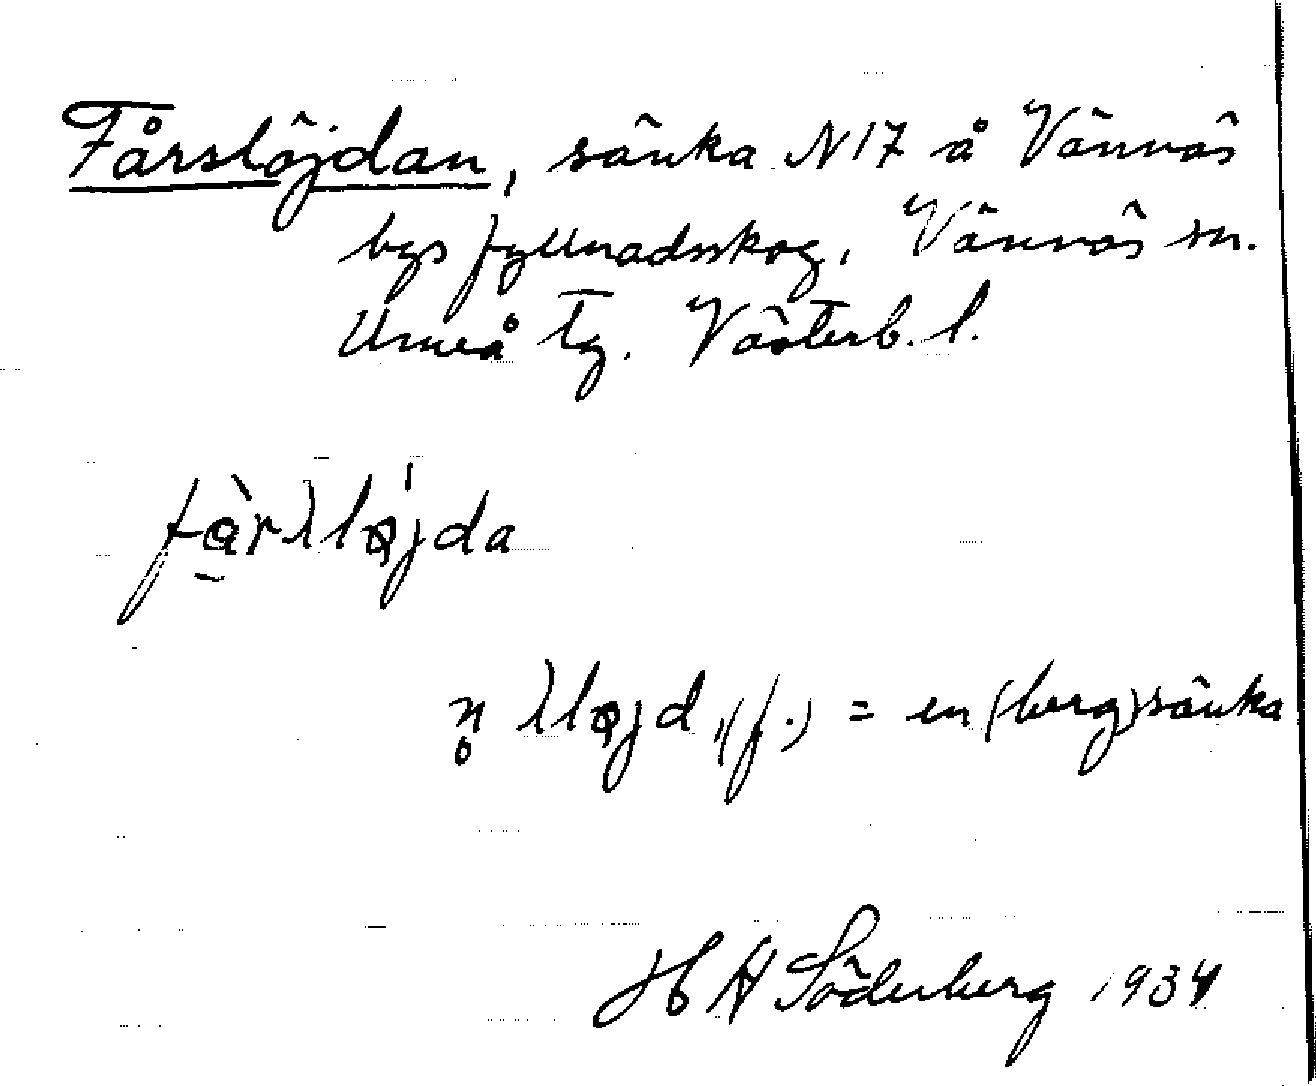 Fårslöjdan, sänka N 17 å Vännäs
bys fyllnadsskog, Vännäs sn.
Umeå tg. Västerb. l.
H A Söderberg 1934
= en (berg)sänka